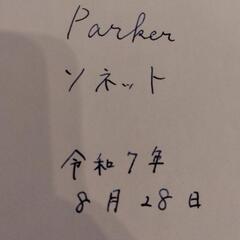 Parker
ソネット
令和7年
8月28日